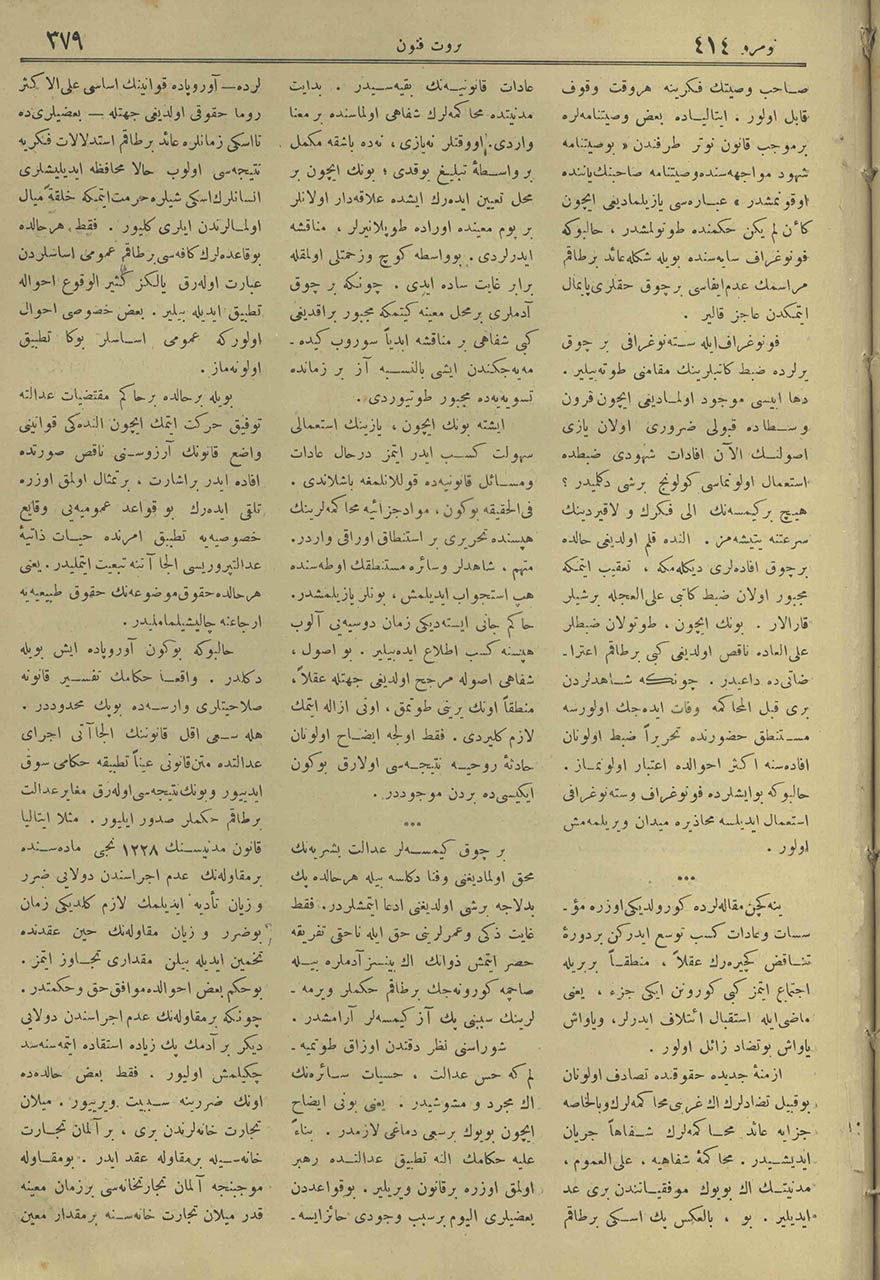 نومرو ٤١٤
ثروت فنون
٣٧٩
صاحب وصیتك فكرینه هروقت وقوف
قابل اولور . ایتالیاده بعض وصیتنامه‌لره
برموجب قانون نوتر طرفندن « بوصیتنامه
شهود مواجهه‌سنده وصیتنامه صاحبنك یاننده
اوقونمشدر » عباره‌سی یازیلمادیغی ایچون
كأن لم یكن حكمنده طوتولمشدر ، حالبوكه
فونوغراف سایه‌سنده بویله شكله عائد برطاقم
مراسمك عدم ایفاسی برچوق حقلری پایمال
ایتمكدن عاجز قالیر .
فونوغراف ایله سته‌نوغرافی بر چوق
یرلرده ضبط كاتبلرینك مقامنی طوته‌بیلیر .
دها اییسی موجود اولمادیغی ایچون قرون
وسطاده قبولی ضروری اولان یازی
اصولنك الآن افادات شهودی ضبطده
استعمال اولونماسی كولونج برشی دكلیدر ؟
هیچ بركیمسه‌نك الی فكرك و لاقیردینك
سرعتنه یتیشه‌مز . النده قلم اولدیغی حالده
برچوق افاده‌لری دیكله‌مكه ، تعقیب ایتمكه
مجبور اولان ضبط كاتبی علی‌العجله برشیلر
قارالار . بونك ایچون ، طوتولان ضبطلر
علی‌العاده ناقص اولدیغی كبی برطاقم اعترا-
ضاتی‌ده داعیدر . چونكه شاهدلردن
بری قبل المحاكمه وفات ایده‌جك اولورسه
مستنطق حضورنده تحریراً ضبط اولونان
افاده‌سنه اكثر احوالده اعتبار اولونماز .
حالبوكه بوایشلرده فونوغراف وسته‌نوغرافی
استعمال ایدیلسه محاذیره میدان ویریلمه‌مش
اولور .
***
ینه كچن مقاله‌لرده كورولدیكی اوزره مؤ-
سسات وعادات كسب توسع ایدركن بردورهٔ
تناقض كچیره‌رك عقلاً ، منطقاً بربریله
اجتماع ایتمز كبی كورونن ایكی جزء ، یعنی
ماضی ایله استقبال ائتلاف ایدرلر، ویاواش
یاواش بوتضاد زائل اولور .
ازمنهٔ جدیده حقوقنده تصادف اولونان
بوقبیل تضادلرك اك غریبی محاكمه‌لرك وبالخاصه
جزایه عائد محاكمه‌لرك شفاهاً جریان
ایدیشیدر . محاكمهٔ شفاهیه ، علی‌العموم ،
مدنیتك اك بویوك موفقیاتندن بری عد
ایدیلیر . بو ، بالعكس پك اسكی برطاقم
عادات قانونیه‌نك بقیه‌سیدر . بدایت
مدنیتده محاكمه‌لرك شفاهی اولماسنده برمعنا
واردی. اووقتلر نه‌یازی ، نه‌ده باشقه مكمل
برواسطهٔ تبلیغ یوقدی ؛ بونك ایچون بر
محل تعیین ایده‌رك ایشده علاقه‌دار اولانلر
بر یوم معینده اوراده طوپلانیرلر ، مناقشه
ایدرلردی . بوواسطه كوچ وزحمتلی اولمقله
برابر غایت ساده ایدی . چونكه برچوق
آدملری برمحل معینه كیتمكه مجبور براقدیغی
كبی شفاهی بر مناقشه ابدیاً سوروب كیده-
مه‌یه‌جكندن ایشی بالنسبه آز بر زمانده
تسویه‌یه‌ده مجبور طوتیوردی .
ایشته بونك ایچون ، یازینك استعمالی
سهولت كسب ایدر ایتمز درحال عادات
ومسائل قانونیه‌ده قوللانلمغه باشلاندی .
فی‌الحقیقه بوكون ، موادجزائیه محاكمه‌لرینك
هپسنده تحریری بر استنطاق اوراقی واردر.
متهم ، شاهدلر وسائره مستنطقك اوطه‌سنده
هپ استجواب ایدیلمش ، بونلر یازیلمشدر.
حاكم جانی ایسته‌دیكی زمان دوسیه‌یی آلوب
هپسنه كسب اطلاع ایده‌بیلیر . بو اصول ،
شفاهی اصوله مرجح اولدیغی جهتله عقلاً،
منطقاً اونك یرینی طوتمق، اونی ازاله ایتمك
لازم كلیردی . فقط اولجه ایضاح اولونان
حادثهٔ روحیه نتیجه‌سی اولارق بوكون
ایكیسی‌ده بردن موجوددر .
***
بر چوق كیمسه‌لر عدالت بشریه‌نك
محق اولمادیغنی وفنا دكلسه بیله هرحالده پك
بدلاجه برشی اولدیغنی ادعا ایتمشلردر. فقط
غایت ذكی وعمرلرینی حق ایله ناحقی تفریقه
حصر ایتمش ذواتك اك بینسز آدملره بیله
صاچمه كورونه‌جك برطاقم حكملر ویرمه-
لرینك سببنی پك آز كیمسه‌لر آرامشدر .
شوراسنی نظر دقتدن اوزاق طوتمیه-
لم كه حس عدالت ، حسیات سائره‌نك
اك مجرد و مشوشیدر . یعنی بونی ایضاح
ایچون بویوك برسعی دماغی لازمدر . بناءً
علیه حكامك النه تطبیق عدالتده رهبر
اولمق اوزره برقانون ویریلیر . بوقواعددن
بعضیلری الیوم برسبب وجودی حائزایسه-
لرده — آوروپاده قوانینك اساسی علی‌الاكثر
روما حقوقی اولدیغی جهتله — بعضیلری‌ده
تااسكی زمانلره عائد برطاقم استدلالات فكریه
نتیجه‌سی اولوب حالا محافظه ایدیلیشلری
انسانلرك اسكی شیلره حرمت ایتمكه خلقةً میال
اولمالرندن ایلری كلیور . فقط هرحالده
بوقاعده‌لرك كافه‌سی برطاقم عمومی اساسلردن
عبارت اوله‌رق یالكز كثیر الوقوع احواله
تطبیق ایدیله بیلیر . بعض خصوصی احوال
اولوركه عمومی اساسلر بوكا تطبیق
اولونه‌ماز .
بویله برحالده برحاكم مقتضیات عدالته
توفیق حركت ایتمك ایچون النده‌كی قوانینی
واضع قانونك آرزوسنی ناقص صورتده
افاده ایدر براشارت ، برتمثال اولمق اوزره
تلقی ایده‌رك بو قواعد عمومیه‌یی وقایع
خصوصیه‌یه تطبیق امرنده حیات ذاتیهٔ
عدالتپروریسی الجاآتنه تبعیت ایتملیدر. یعنی
هرحالده حقوق موضوعه‌نك حقوق طبیعیه‌یه
ارجاعنه چالیشیلمالیدر .
حالبوكه بوكون آوروپاده ایش بویله
دكلدر . واقعا حكامك تفسیر قانونه
صلاحیتلری وارسه‌ده بوپك محدوددر .
هله سعی اقل قانوننك الجاآتی اجرای
عدالتده متن قانونی عیناً تطبیقه حكامی سوق
ایدییور وبونك نتیجه‌سی اوله‌رق مغایر عدالت
برطاقم حكملر صدور ایلیور . مثلا ایتالیا
قانون مدنیسنك ١٢٢٨ نجی ماده‌سنده
برمقاوله‌نك عدم اجراسندن دولایی ضرر
و زیان تأدیه ایدیلمك لازم كلدیكی زمان
بوضرر و زیان مقاوله‌نك حین عقدنده
تخمین ایدیله بیلن مقداری تجاوز ایتمز .
بوحكم بعض احوالده موافق حق وحكمتدر .
چونكه برمقاوله‌نك عدم اجراسندن دولایی
دیكر برآدمك پك زیاده استفاده ایتمه‌سنه سد
چكیلمش اولیور . فقط بعض حالده‌ده
اونك ضررینه سببیت ویرییور . میلان
تجارت خانه‌لرندن بری ، بر آلمان تجارت
خانه‌سیله برمقاوله عقد ایدر . بومقاوله
موجبنجه آلمان تجارتخانه‌سی برزمان معینه
قدر میلان تجارت خانه‌سنه برمقدار معین